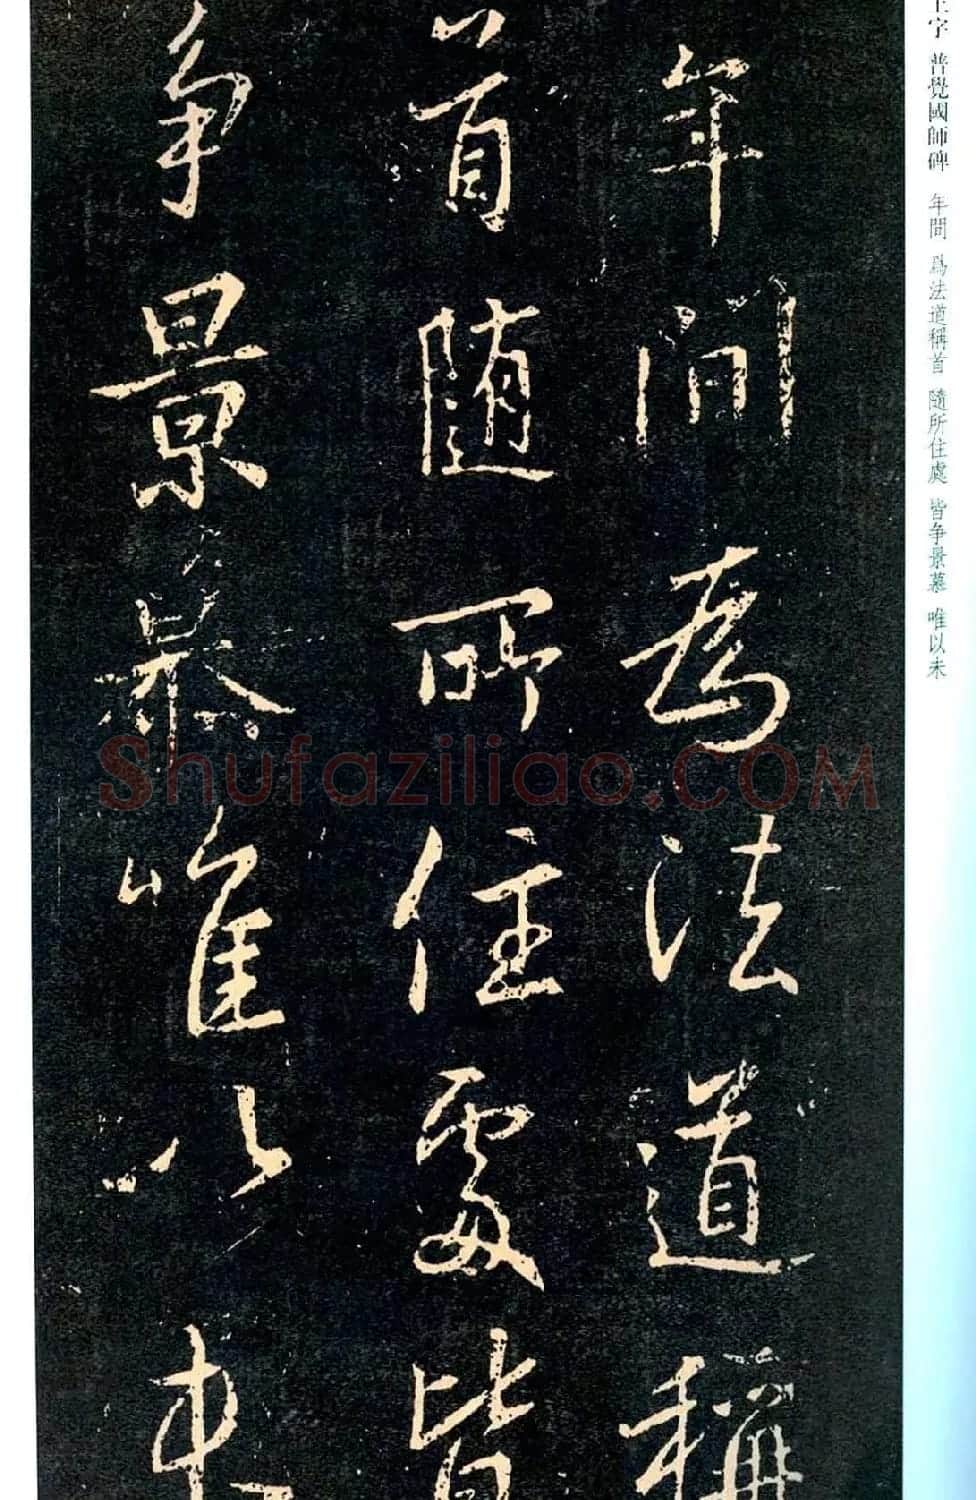 王字 普覺國師碑 年間 爲法道稱首 隨所住處 皆争景慕 唯以未
年間爲法道稱
首隨所住處皆
争景慕唯以未
Shufaziliao.COM